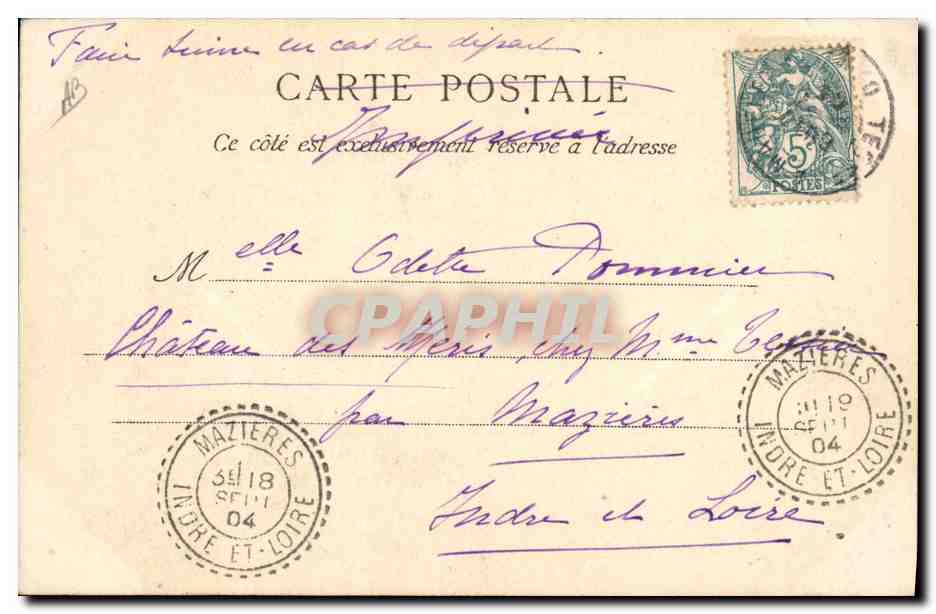 Faire suivre en cas de départ.
AB
CARTE POSTALE
Ce côté est exclusivement réservé à l'adresse
5
POSTES
Melle Odette Pommier
CPAPHIL
Château des Meris, chez Mme
par Mazières
Indre et Loire
MAZIERES
18
SEPT
04
INDRE ET-LOIRE
MAZIERES
19
SEPT
04
INDRE ET-LOIRE